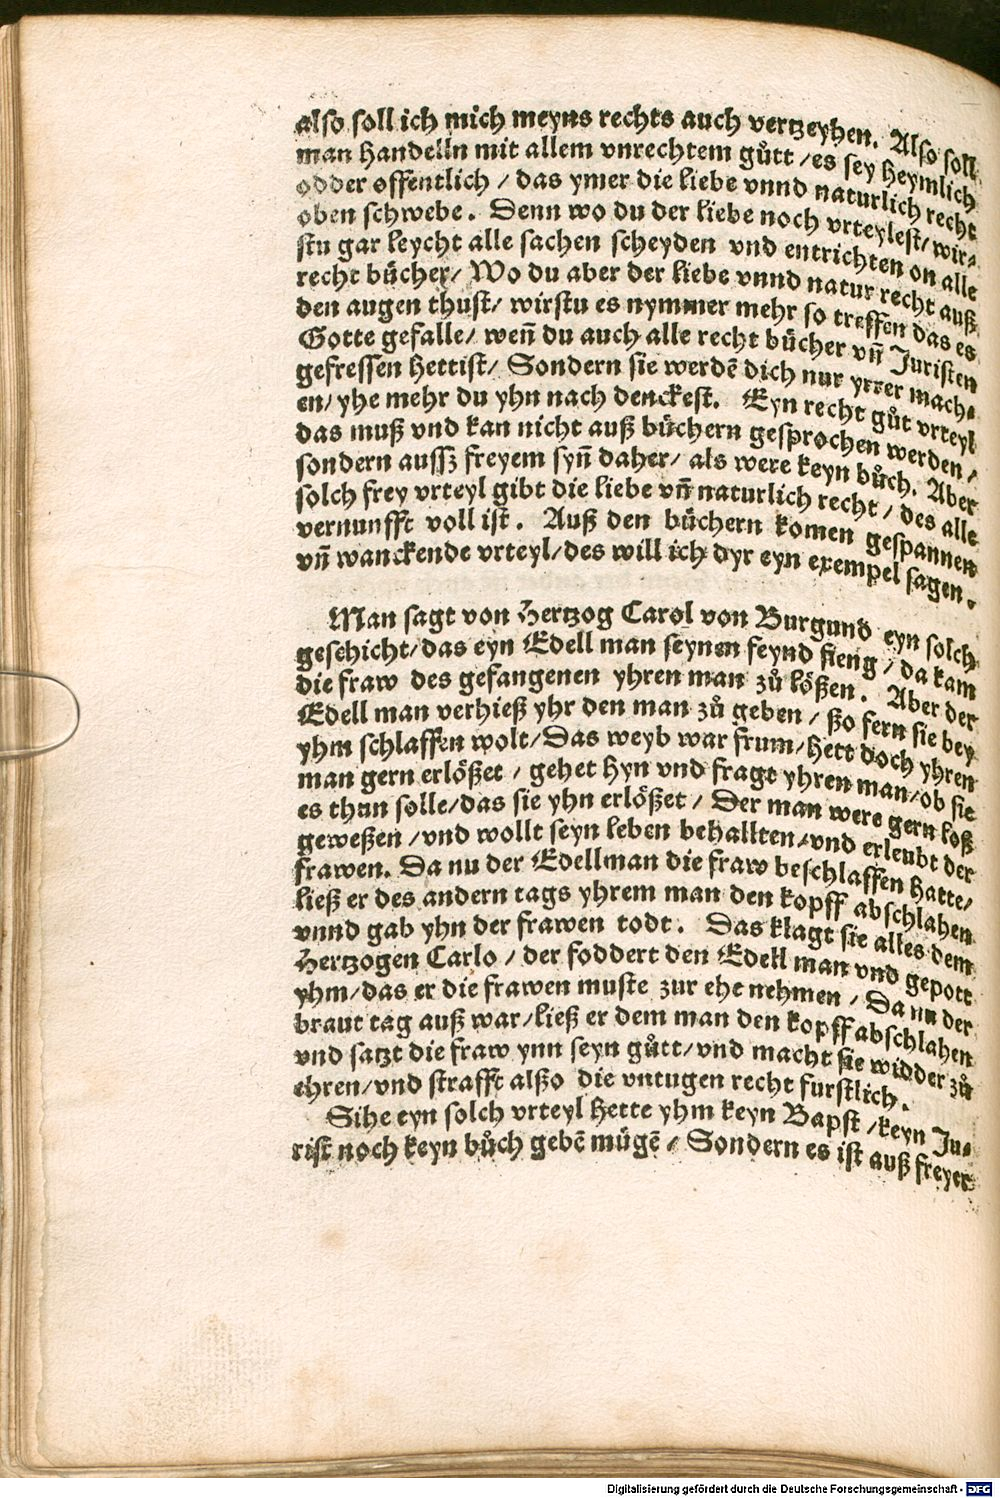 also soll ich mich meyns rechts auch vertzeyhen. Also soll
man handelln mit allem vnrechtem gůtt /es sey heymlich
odder offentlich / das ymer die liebe vnnd naturlich recht
oben schwebe. Denn wo du der liebe noch vrteylest/ wir⸗
stu gar leycht alle sachen scheyden vnd entrichten on alle
recht bücher/ Wo du aber der liebe vnnd natur recht auß
den augen thust/ wirstu es nymmer mehr so treffen das es
Gotte gefalle/ weñ du auch alle recht bücher vñ Juristen
gefressen hettist/ Sondern sie werdē dich nur yrrer mach⸗
en/ yhe mehr du yhn nach denckest. Eyn recht gůt vrteyl
das muß vnd kan nicht auß büchern gesprochen werden /
sondern aussz freyem syñ daher/ als were keyn bůch. Aber
solch frey vrteyl gibt die liebe vñ naturlich recht / des alle
vernunfft voll ist. Auß den büchern komen gespannen
vñ wanckende vrteyl/des will ich dyr eyn exempel sagen.
Man sagt von Hertzog Carol von Burgund eyn solch
geschicht/das eyn Edell man seynen feynd fieng / da kam
die fraw des gefangenen yhren man zů lößen. Aber der
Edell man verhieß yhr den man zů geben / ßo fern sie bey
yhm schlaffen wolt/Das weyb war frum/hett doch yhren
man gern erlößet / gehet hyn vnd fragt yhren man/ob sie
es thun solle/das sie yhn erlößet / Der man were gern loß
geweßen /vnd wollt seyn leben behallten/vnd erleubt der
frawen. Da nu der Edellman die fraw beschlaffen hatte/
ließ er des andern tags yhrem man den kopff abschlahen
vnnd gab yhn der frawen todt. Das klagt sie alles dem
Hertzogen Carlo / der foddert den Edell man vnd gepott
yhm/das er die frawen muste zur ehe nehmen / Da nu der
braut tag auß war/ließ er dem man den kopff abschlahen
vnd satzt die fraw ynn seyn gůtt/vnd macht sie widder zů
ehren/vnd strafft alßo die vntugen recht furstlich.
Sihe eyn solch vrteyl hette yhm keyn Bapst /keyn Ju⸗
rist noch keyn bůch gebē mügē / Sondern es ist auß freyer
Digitalisierung gefördert durch die Deutsche Forschungsgemeinschaft - DFG